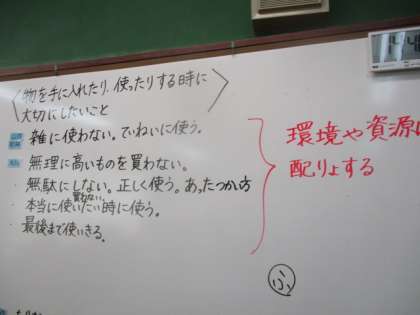 物を手に入れたり、使ったりする時に
大切にしたいこと
雑に使わない。ていねいに使う。
無理に高いものを買わない。
・無駄にしない。正しく使う。あつかい方
買わない。
・本当に使いたい時に使う。
・最後まで使いきる。
環境や資源に
配りょする
ふ